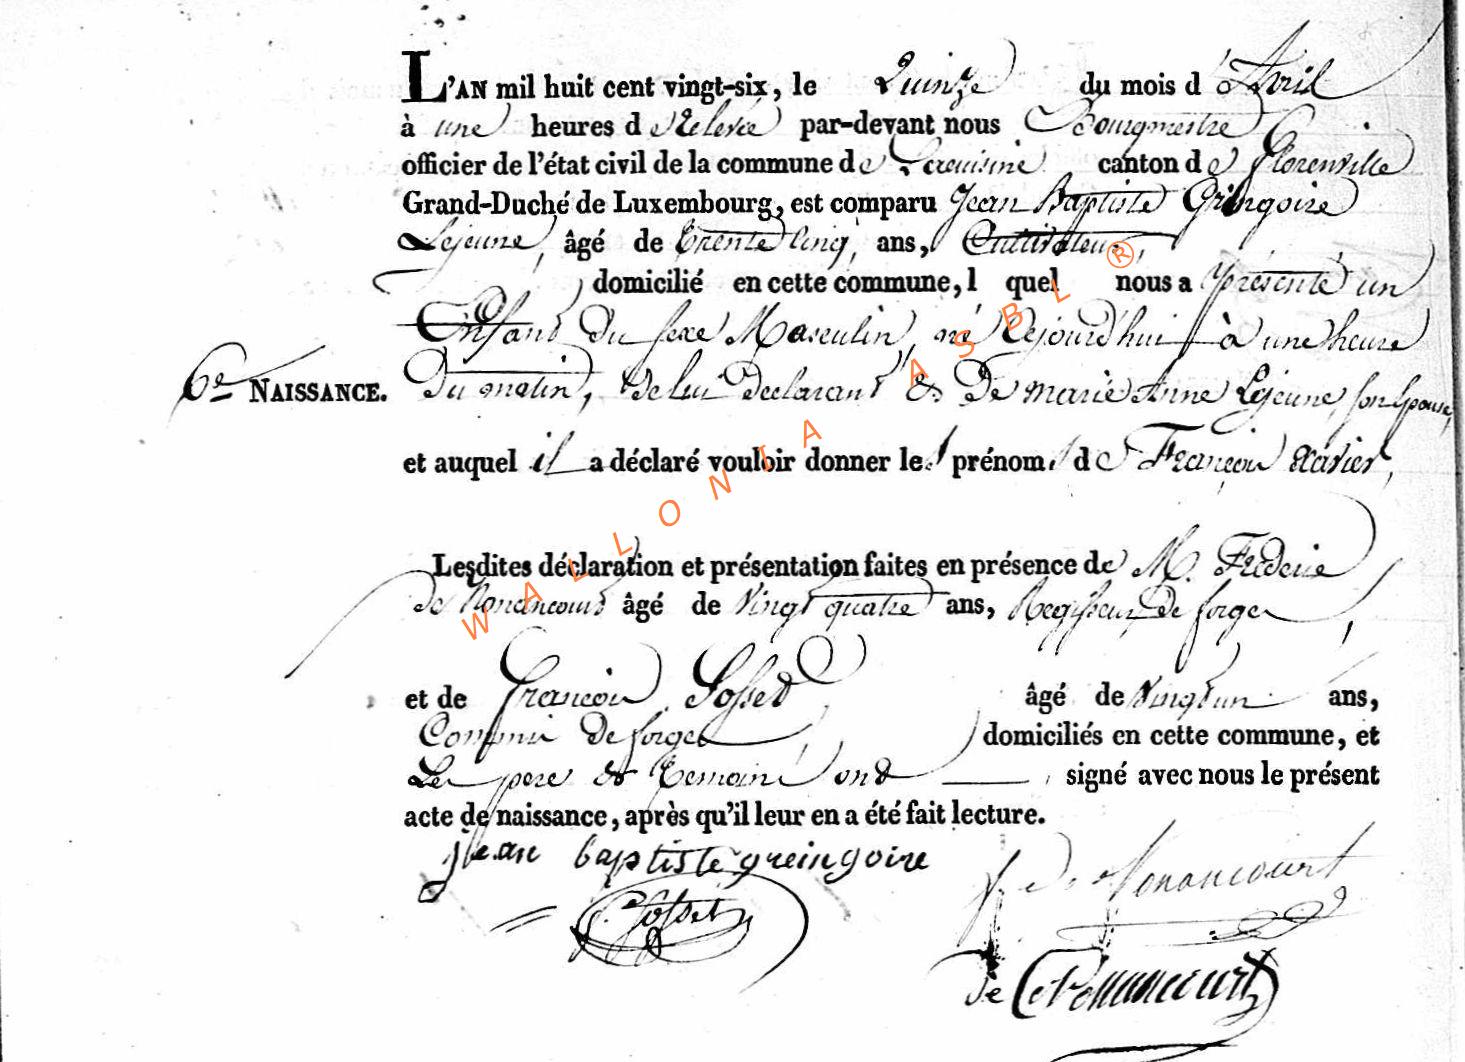 L'AN mil huit cent vingt-six, le Quinze du mois d'Avril
à une heures de Relevée par-devant nous Bourgmestre
officier de l'état civil de la commune de canton de Florenville
Grand-Duché de Luxembourg, est comparu Jean Baptiste Gringoire
Lejeune, âgé de trente cinq, ans, Cultivateur,
domicilié en cette commune, l quel nous a présenté un
Enfant du sexe Masculin, né Cejourd'hui à une heure
6e NAISSANCE. Du matin, de lui Declarant & De marie Anne Lejeune, son Epouse,
et auquel il a déclaré vouloir donner les prénoms de François Xavier,
Lesdites déclaration et présentation faites en présence de M. Frederic
de Nonancourt âgé de Vingt quatre ans, Regisseur De forges,
et de François Sosset, âgé de Vingt un ans,
Commis De forges, domiciliés en cette commune, et
Les pere & temoins ont signé avec nous le présent
acte de naissance, après qu'il leur en a été fait lecture.
jean baptiste greingoire
f. de Nonancourt
f. Sosset
de Nonancourt
WALLONIA ASBL ®